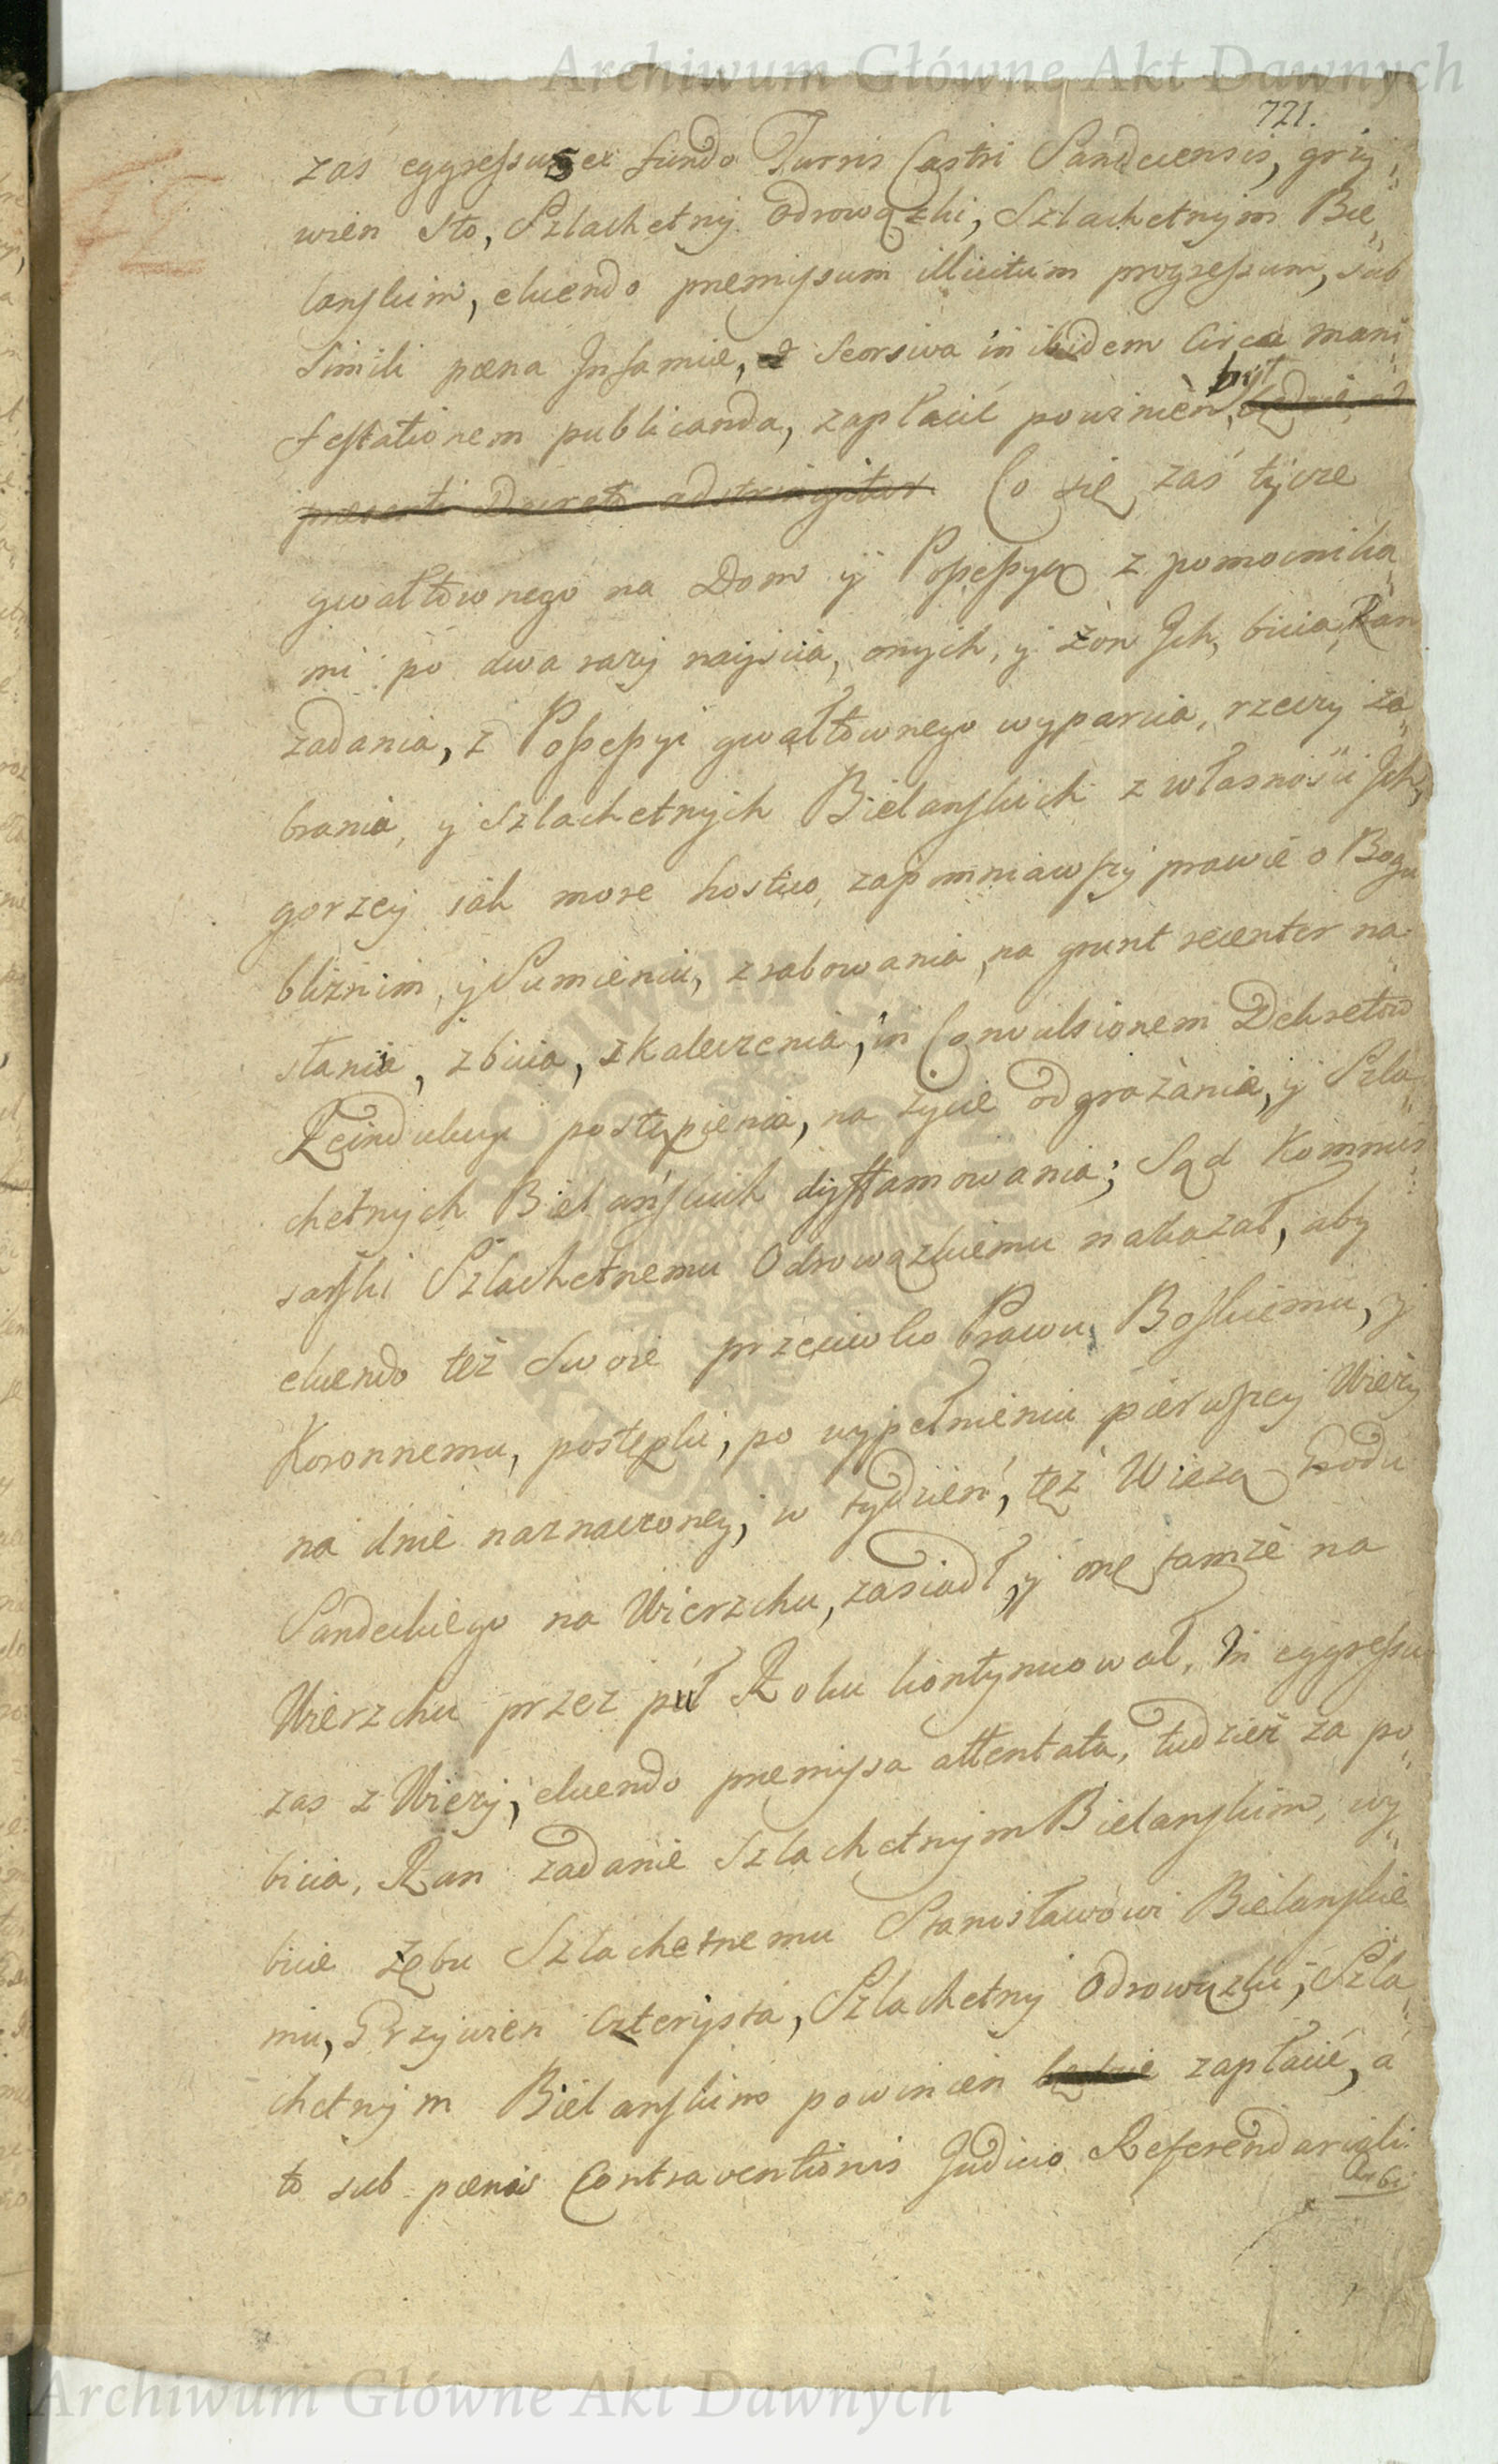 Archiwum Główne Akt Dawnych
721.
zas eggressus ex fundo Turris Castri Sandecensis, grzy,,
wien sto, Szlachetny Odrowązki, Szlachetnym Bie,,
lanskim, eluendo premissum illicitum progressum, sub
simili pœna Infamiæ, seorsiva in ibidem Circa mani,,
festationem publicanda, zapłacić powinien był będzie, et
presenti Decreto adstringitur. Co się zaś tycze
gwałtownego na Dom y Possessyą z pomocnika,,
mi po dwa razy nayscia, onych, y żon Ich, bicia, Ran
zadania, z Possessyi gwałtownego wyparcia, rzeczy za,,
brania, y Szlachetnych Bielanskich z własności Ich,
gorzey iak more hostico, zapomniawszy prawie o Bogu
bliznim, y Sumieniu, zrabowania, na grunt recenter na,,
stania, zbicia, zkaleczenia, in Convulsionem Dekretow
Reinducuyi postąpienia, na życie odgrażania, y Szla,,
chetnych Bielańskich dysffamowania; Sąd Kommis,,
sarski Szlachetnemu Odrowązkiemu nakazał, aby
eluendo też swoie przeciwko Prawu Boskiemu, y
Koronnemu, postępki, po wypełnieniu pierwszey Wieży
na dnie naznaczoney, w tydzień, też Wieżą Grodu
Sandeckiego na Wierzchu, zasiadł, y onę tamże na
Wierzchu przez puł Roku kontynuował, In eggressu
zas z Wieży, eluendo premissa attentata, tudzież za po,,
bicia, Ran zadanie Szlachetnym Bielanskim, wy,,
bicie zębu Szlachetnemu Stanisławowi Bielanskie
mu, Grzywien czterysta, Szlachetny Odrowązki, Szla,,
chetnym Bielanskim powinien będzie zapłacić, a
to sub pœnis Contraventionis Judicio Referendariali.
Archiwum Główne Akt Dawnych